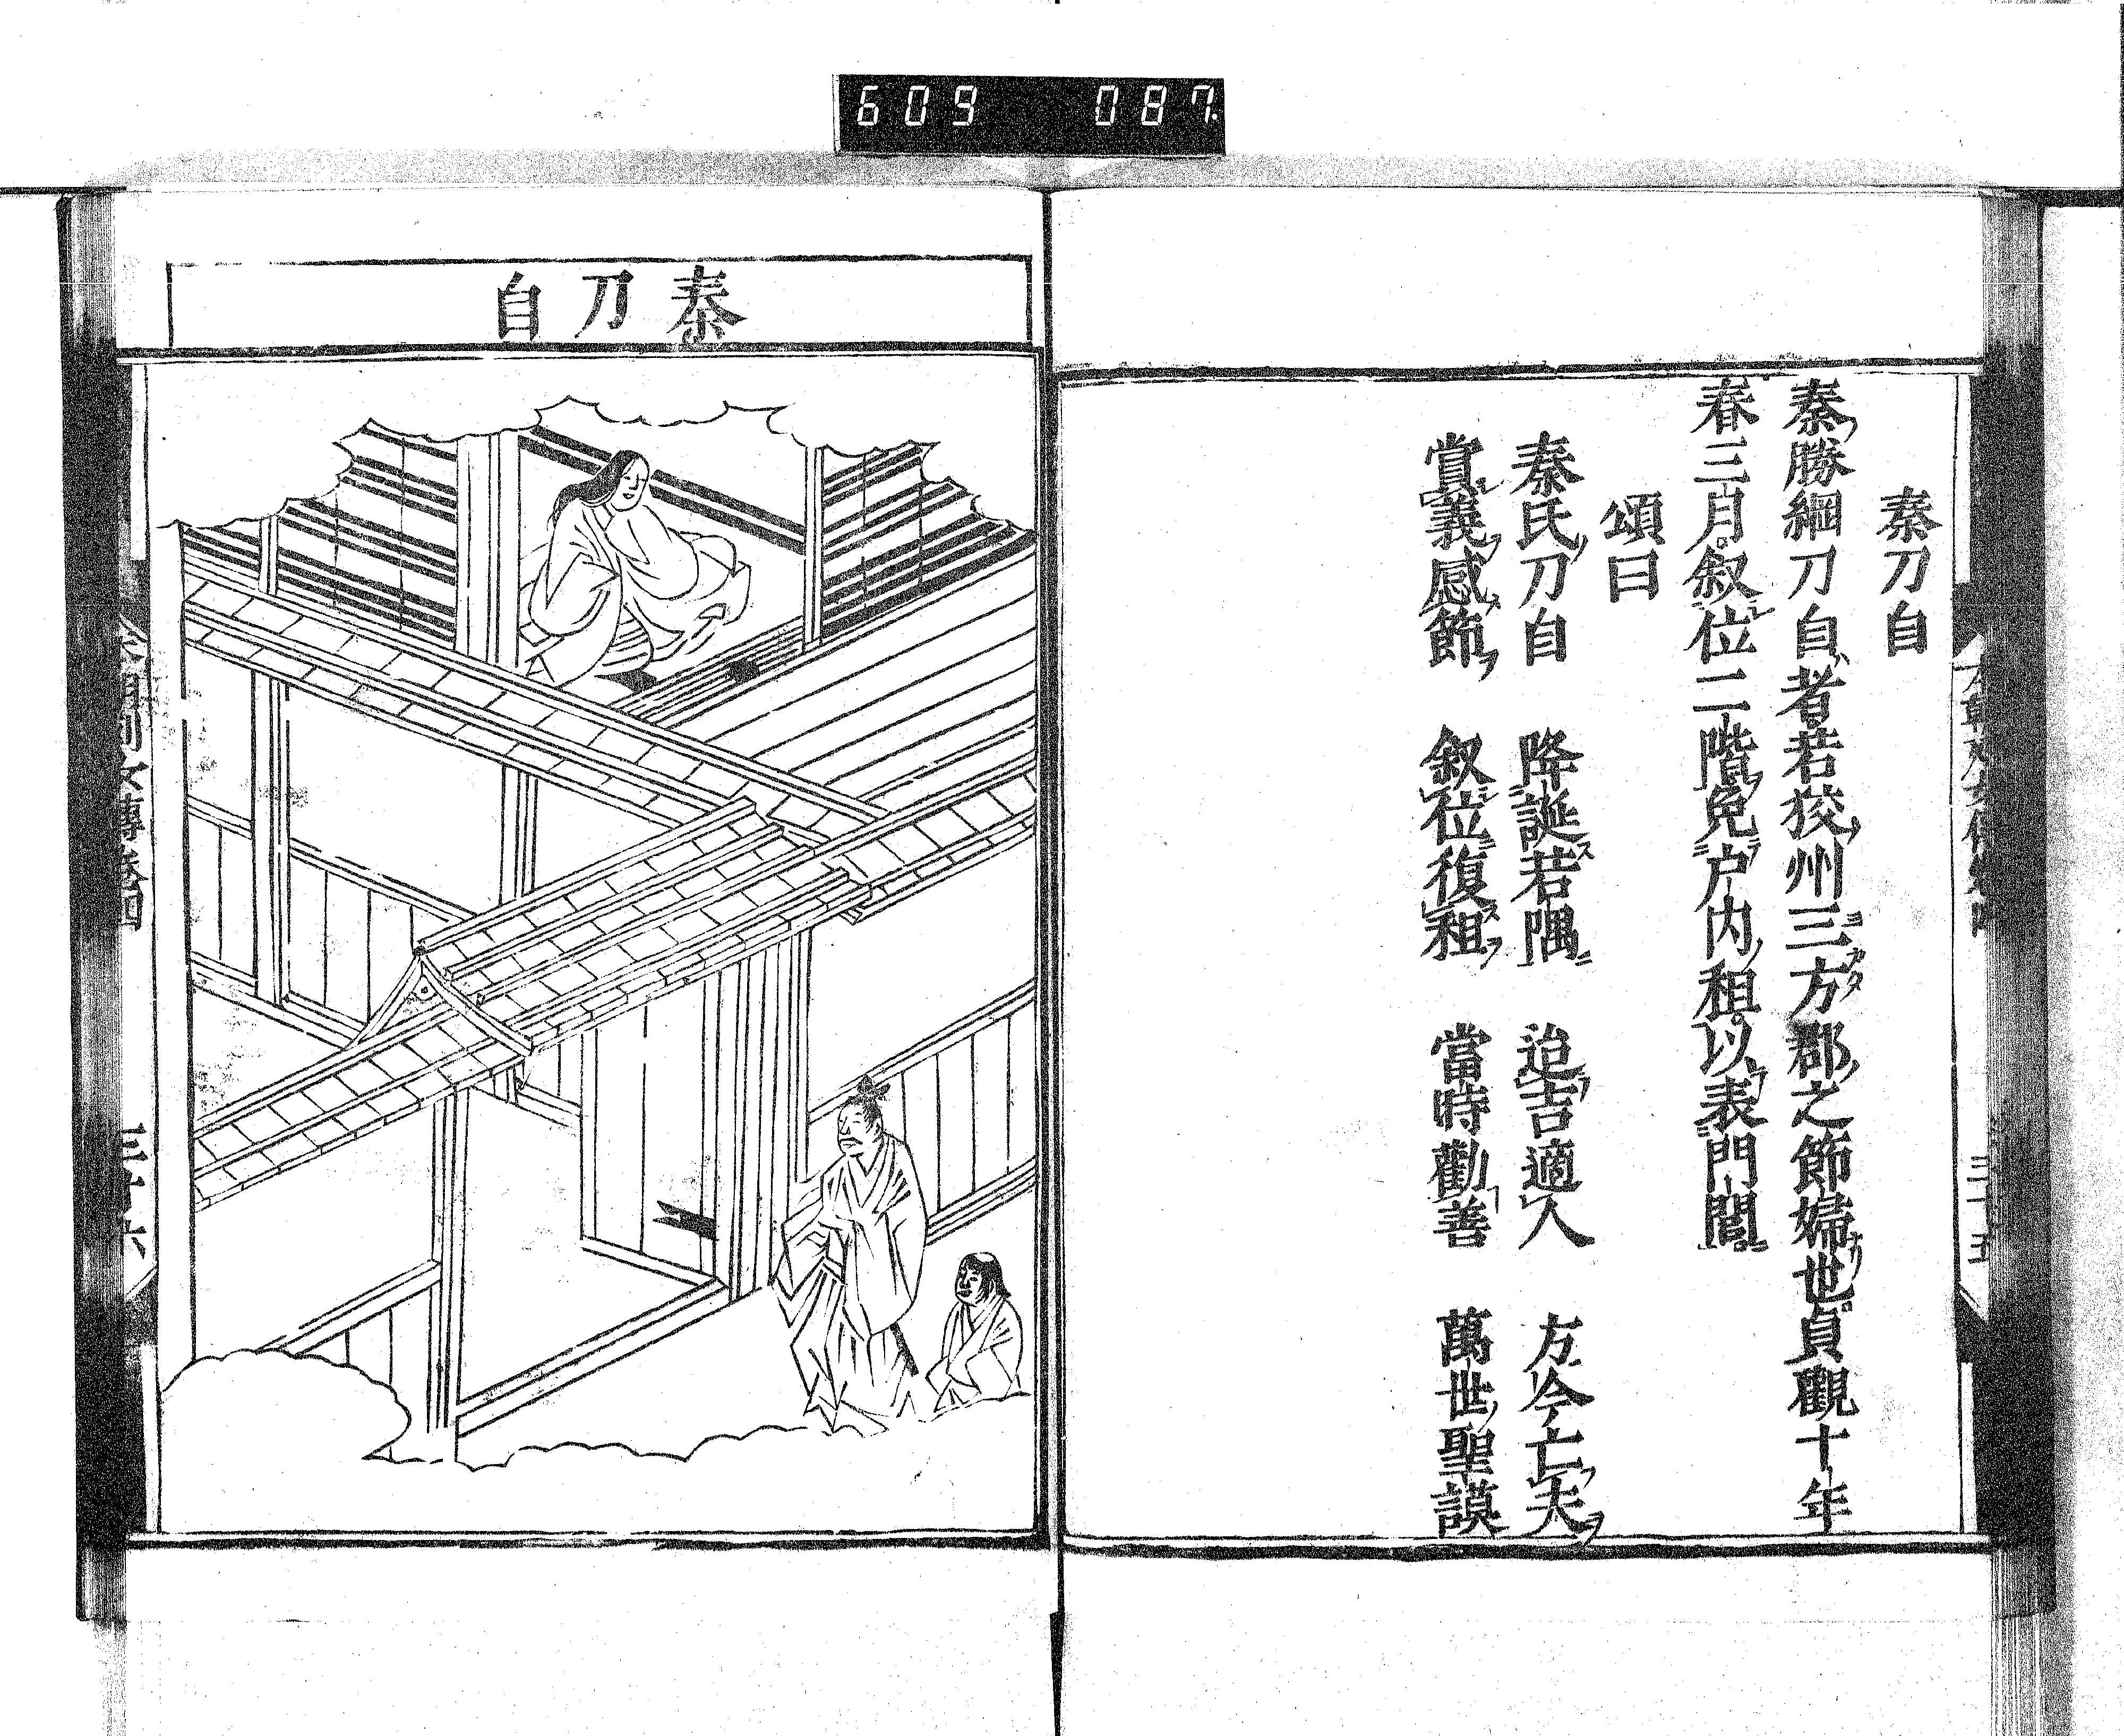 609 087.
秦刀自
秦勝綱刀自者若狹州三方郡之節婦也貞觀十年
春三月叙位二階免户内租以表門閭
頌曰
秦氏刀自 降誕若隅 迨吉適人 方今亡夫
賞義感節 叙位復租 當時勸善 萬世聖謨
三十五
秦刀自
列女傳卷四 三十六